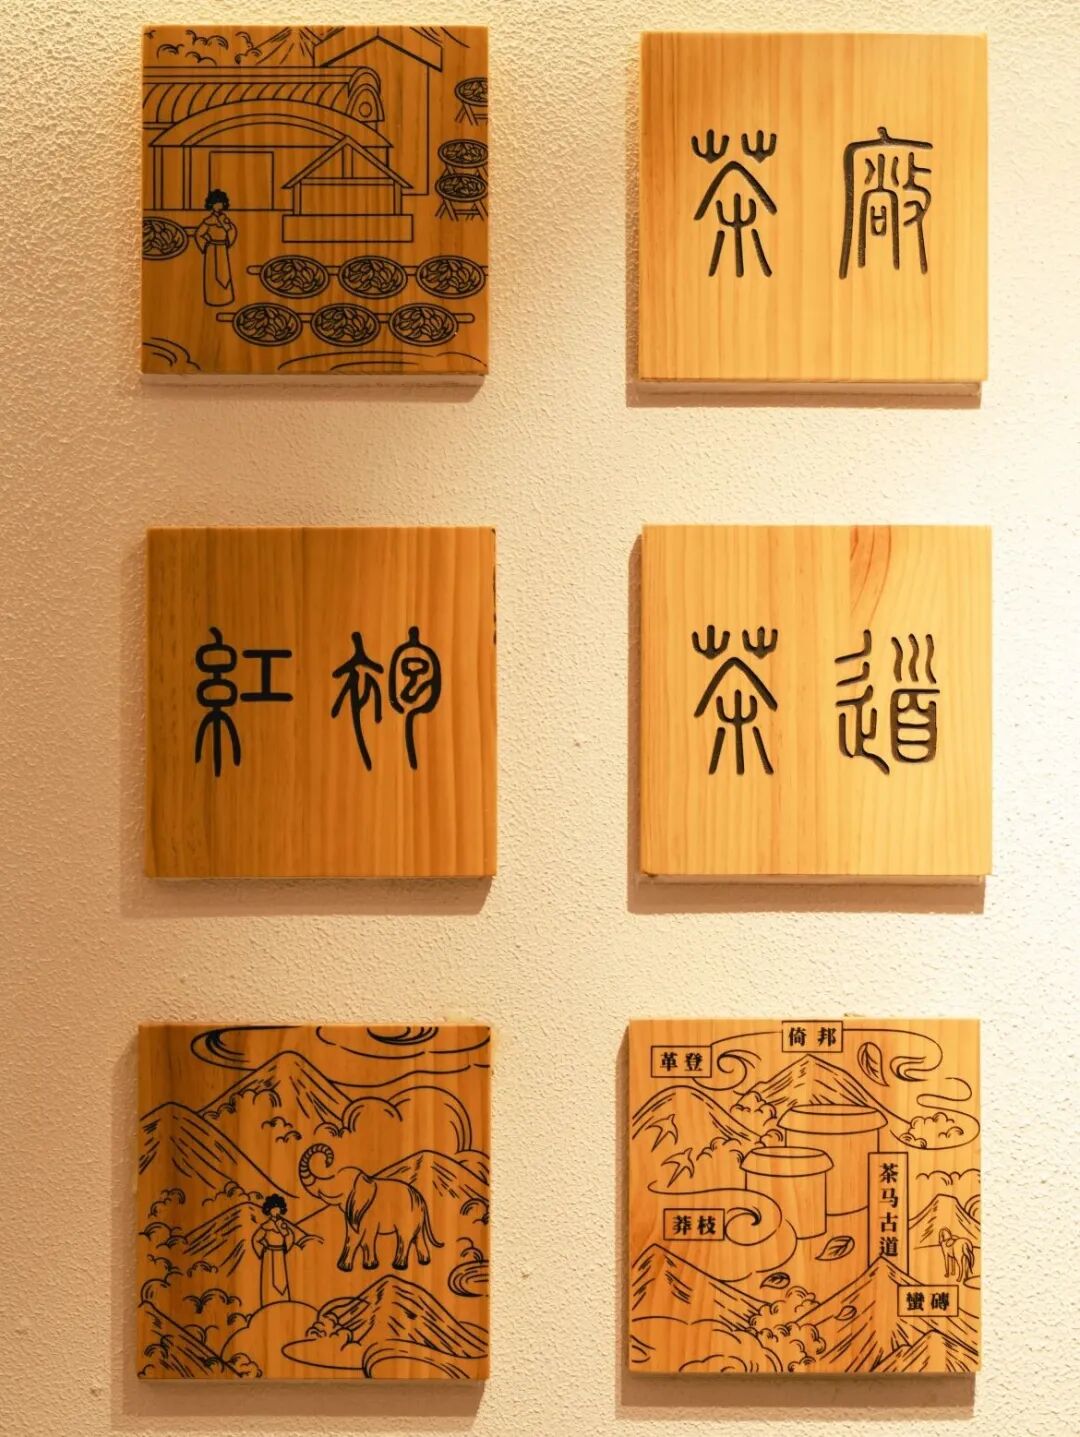 茶廠
紅袍
茶道
倚邦
革登
茶马古道
莽枝
蠻磚